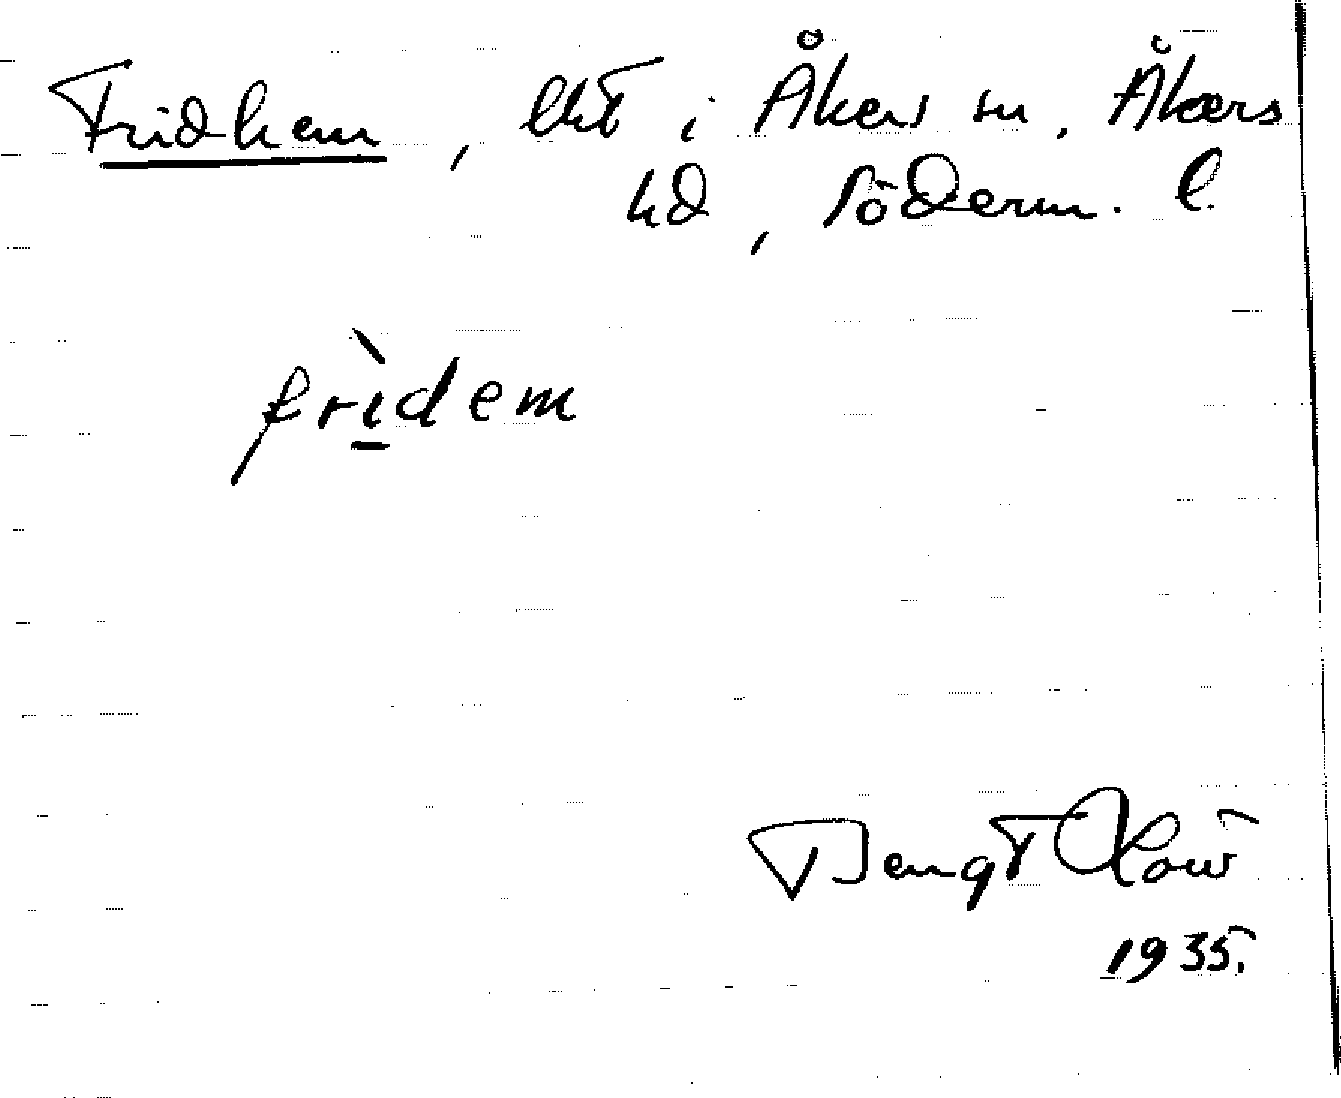 Fridhem, lht i Åkers sn, Åkers
hd, Söderm. l.
frìdem
Bengt
1935.